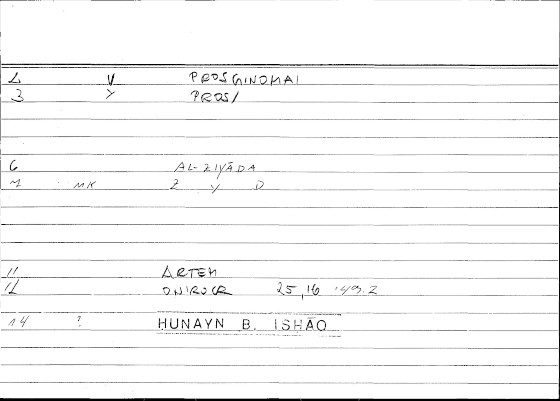 2 V PROSGINOMAI
3 Y PROS/
6 AL-ZIYĀDA
7 MK Z Y D
11 ARTEM
12 ONIROCR 25,16
14 ? HUNAYN B. ISHĀQ